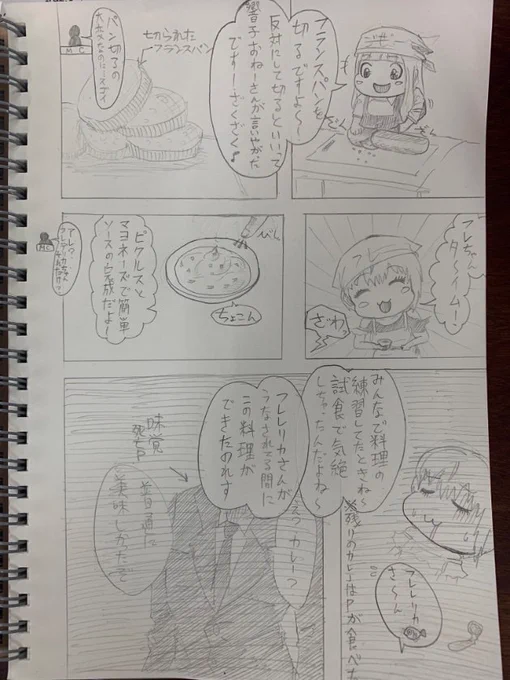 フランスパンを
切るですよ〜
反対にして切るといいって
響子おねーさんが言いやがた
ですー！ざくざく♪
切られた
フランスパン
パン切るの
MC
フレちゃん
タ〜イム！
ざわっ
ちょこん
ピクルスと
マヨネーズで簡単
ソースの完成だよ〜
MC
みんなで料理の
練習してたときね〜
試食で気絶
しちゃったんだよね〜
フレレリカさんが
うなされてる間に
この料理が
できたのれす
えっカレーっ
味覚
P
普通に
美味しかったぞ
※残りのカレーはPが食べた
フレレリカ
さ〜ん